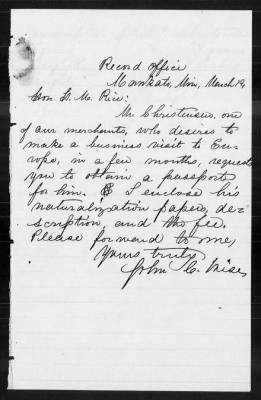 Record Office
Mankato, Min, March 19,
Hon. H. M. Rice:
Mr. Christensen, one
of our merchants, who desires to
make a business visit to Eu-
rope, in a few months, requests
you to obtain a passport
for him. I enclose his
naturalization papers, de-
scription, and the fee.
Please forward to me,
Yours truly,
John C. Wise,